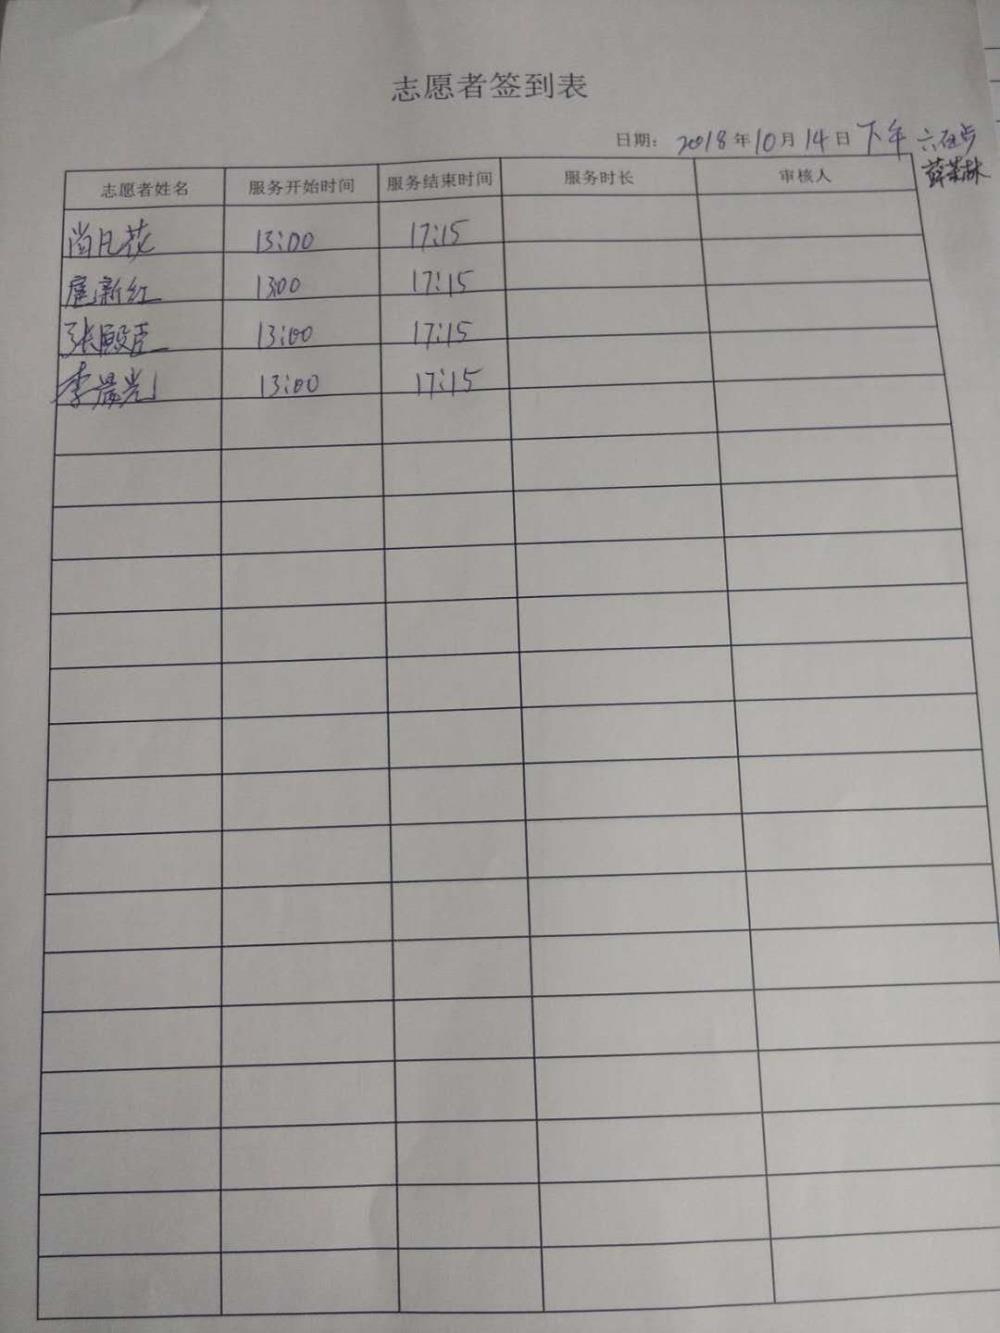 志愿者签到表
日期: 2018年10月14日 下午 六在点
薛 林
志愿者姓名 服务开始时间 服务结束时间 服务时长 审核人
尚凡花 13:00 17:15
扈新红 1300 17:15
张殿臣 13:00 17:15
李晨光 13:00 17:15